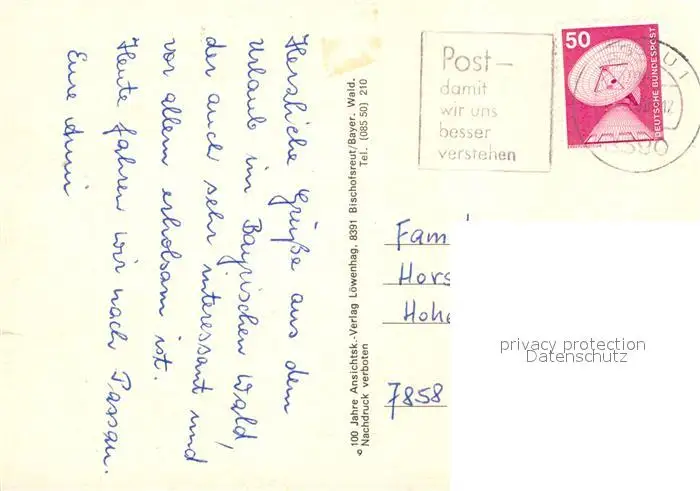 Herzliche Grüße aus dem
Urlaub im Bayrischen Wald,
der auch sehr interessant und
vor allem erholsam ist.
Heute fahren wir nach Passau.
Eure Anni
© 100 Jahre Ansichtsk.-Verlag Löwenhag, 8391 Bischofsreut/Bayer. Wald.
Nachdruck verboten Tel. (085 50) 210
Post –
damit
wir uns
besser
verstehen
50
DEUTSCHE BUNDESPOST
Fam
Hors
Hohe
7858
privacy protection
Datenschutz